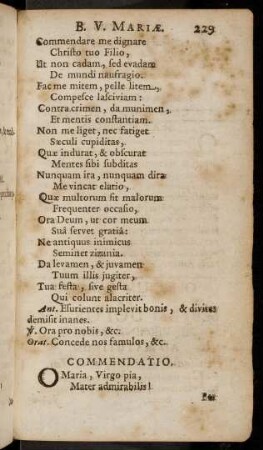 B. V. MARIÆ. 229
Commendare me dignare
Christo tuo Filio,
Ut non cadam, sed evadam
De mundi naufragio.
Fac me mitem, pelle litem,
Compesce lasciviam:
Contra crimen, da munimen,
Et mentis constantiam.
Non me liget, nec fatiget
Sæculi cupiditas,
Quæ indurat, & obscurat
Mentes sibi subditas
Nunquam ira, nunquam dira
Me vincat elatio,
Quæ multorum fit malorum
Frequenter occasio,
Ora Deum, ut cor meum
Suâ servet gratiâ:
Ne antiquus inimicus
Seminet zizania.
Da levamen, & juvamen
Tuum illis jugiter,
Tua festa, sive gesta
Qui colunt alacriter.
Ant. Esurientes implevit bonis, & divites
demisit inanes.
℣. Ora pro nobis, &c.
Orat. Concede nos famulos, &c.
COMMENDATIO.
O Maria, Virgo pia,
Mater admirabilis!